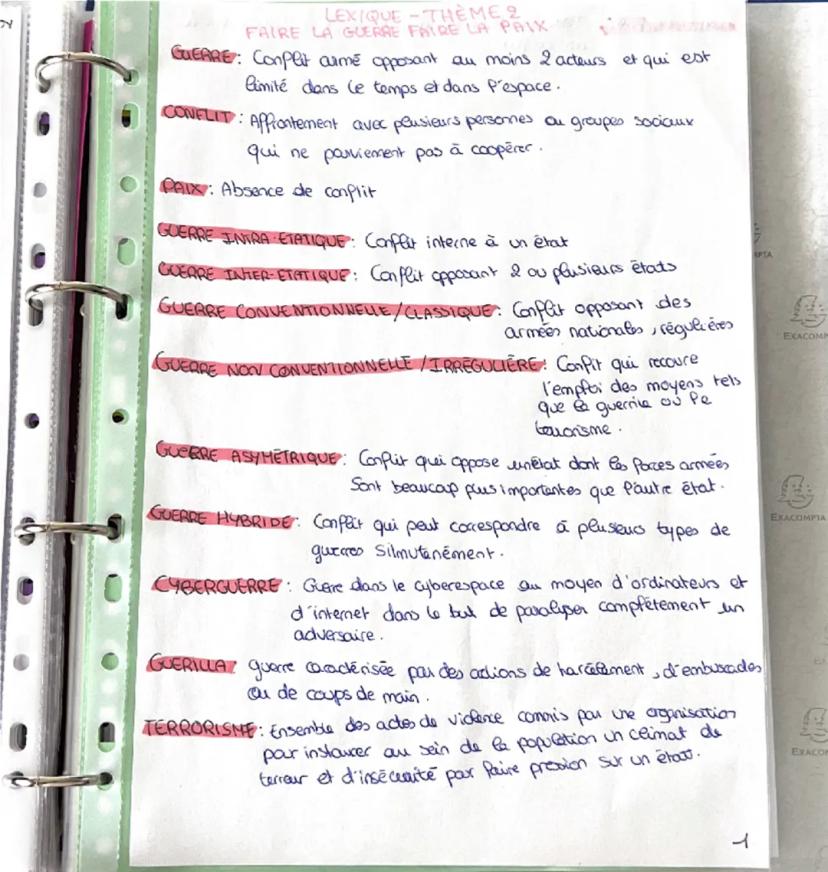 LEXIQUE - THÈME 2
FAIRE LA GUERRE FAIRE LA PAIX
GUERRE : Conflit armé opposant au moins 2 acteurs et qui est
limité dans le temps et dans l'espace.
CONFLIT : Affrontement avec plusieurs personnes ou groupes sociaux
qui ne parviement pas à coopérer.
PAIX : Absence de conflit
GUERRE INTRA-ETATIQUE : Conflit interne à un état
GUERRE INTER-ETATIQUE : Conflit opposant 2 ou plusieurs états
GUERRE CONVENTIONNELLE / CLASSIQUE : Conflit opposant des
armées nationales, régulières
GUERRE NON CONVENTIONNELLE / IRRÉGULIÈRE : Conflit qui recoure
l'emploi des moyens tels
que la guerria ou le
terrorisme.
GUERRE ASYMÉTRIQUE : Conflit qui oppose un état dont les forces armées
Sont beaucoup plus importantes que l'autre état.
GUERRE HYBRIDE : Conflit qui peut correspondre à plusieurs types de
guerres Silmutanément.
CYBERGUERRE : Guerre dans le cyberespace au moyen d'ordinateurs et
d'internet dans le but de paralyser complètement un
adversaire.
GUERILLA : guerre caractérisée par des actions de harcèlement, d'embuscades
ou de coups de main.
TERRORISME : Ensemble des actes de violence commis par une organisation
pour instaurer au sein de la population un climat de
terreur et d'insécurité pour faire pression sur un état.
1
EXACOMPTA